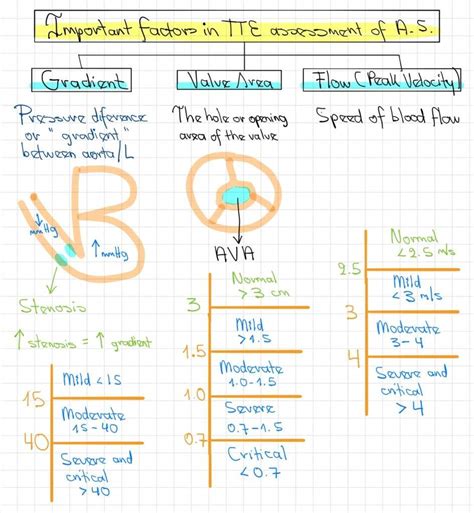 Important factors in TTE assessment of A.S.
Gradient
Pressure diference
or "gradient"
between aorta/L
↓
mmHg
↑ mmHg
Stenosis
↑ stenosis = ↑ gradient
15
40
Mild <15
Moderate
15-40
Severe and
critical
>40
Valve Area
The hole or opening
area of the valve
AVA
3
1.5
1.0
0.7
Normal
>3 cm
Mild
>1.5
Moderate
1.0-1.5
Severe
0.7-1.5
Critical
<0.7
Flow (Peak Velocity)
Speed of blood flow
2.5
3
4
Normal
<2.5 m/s
Mild
<3 m/s
Moderate
3-4
Severe and
critical
>4